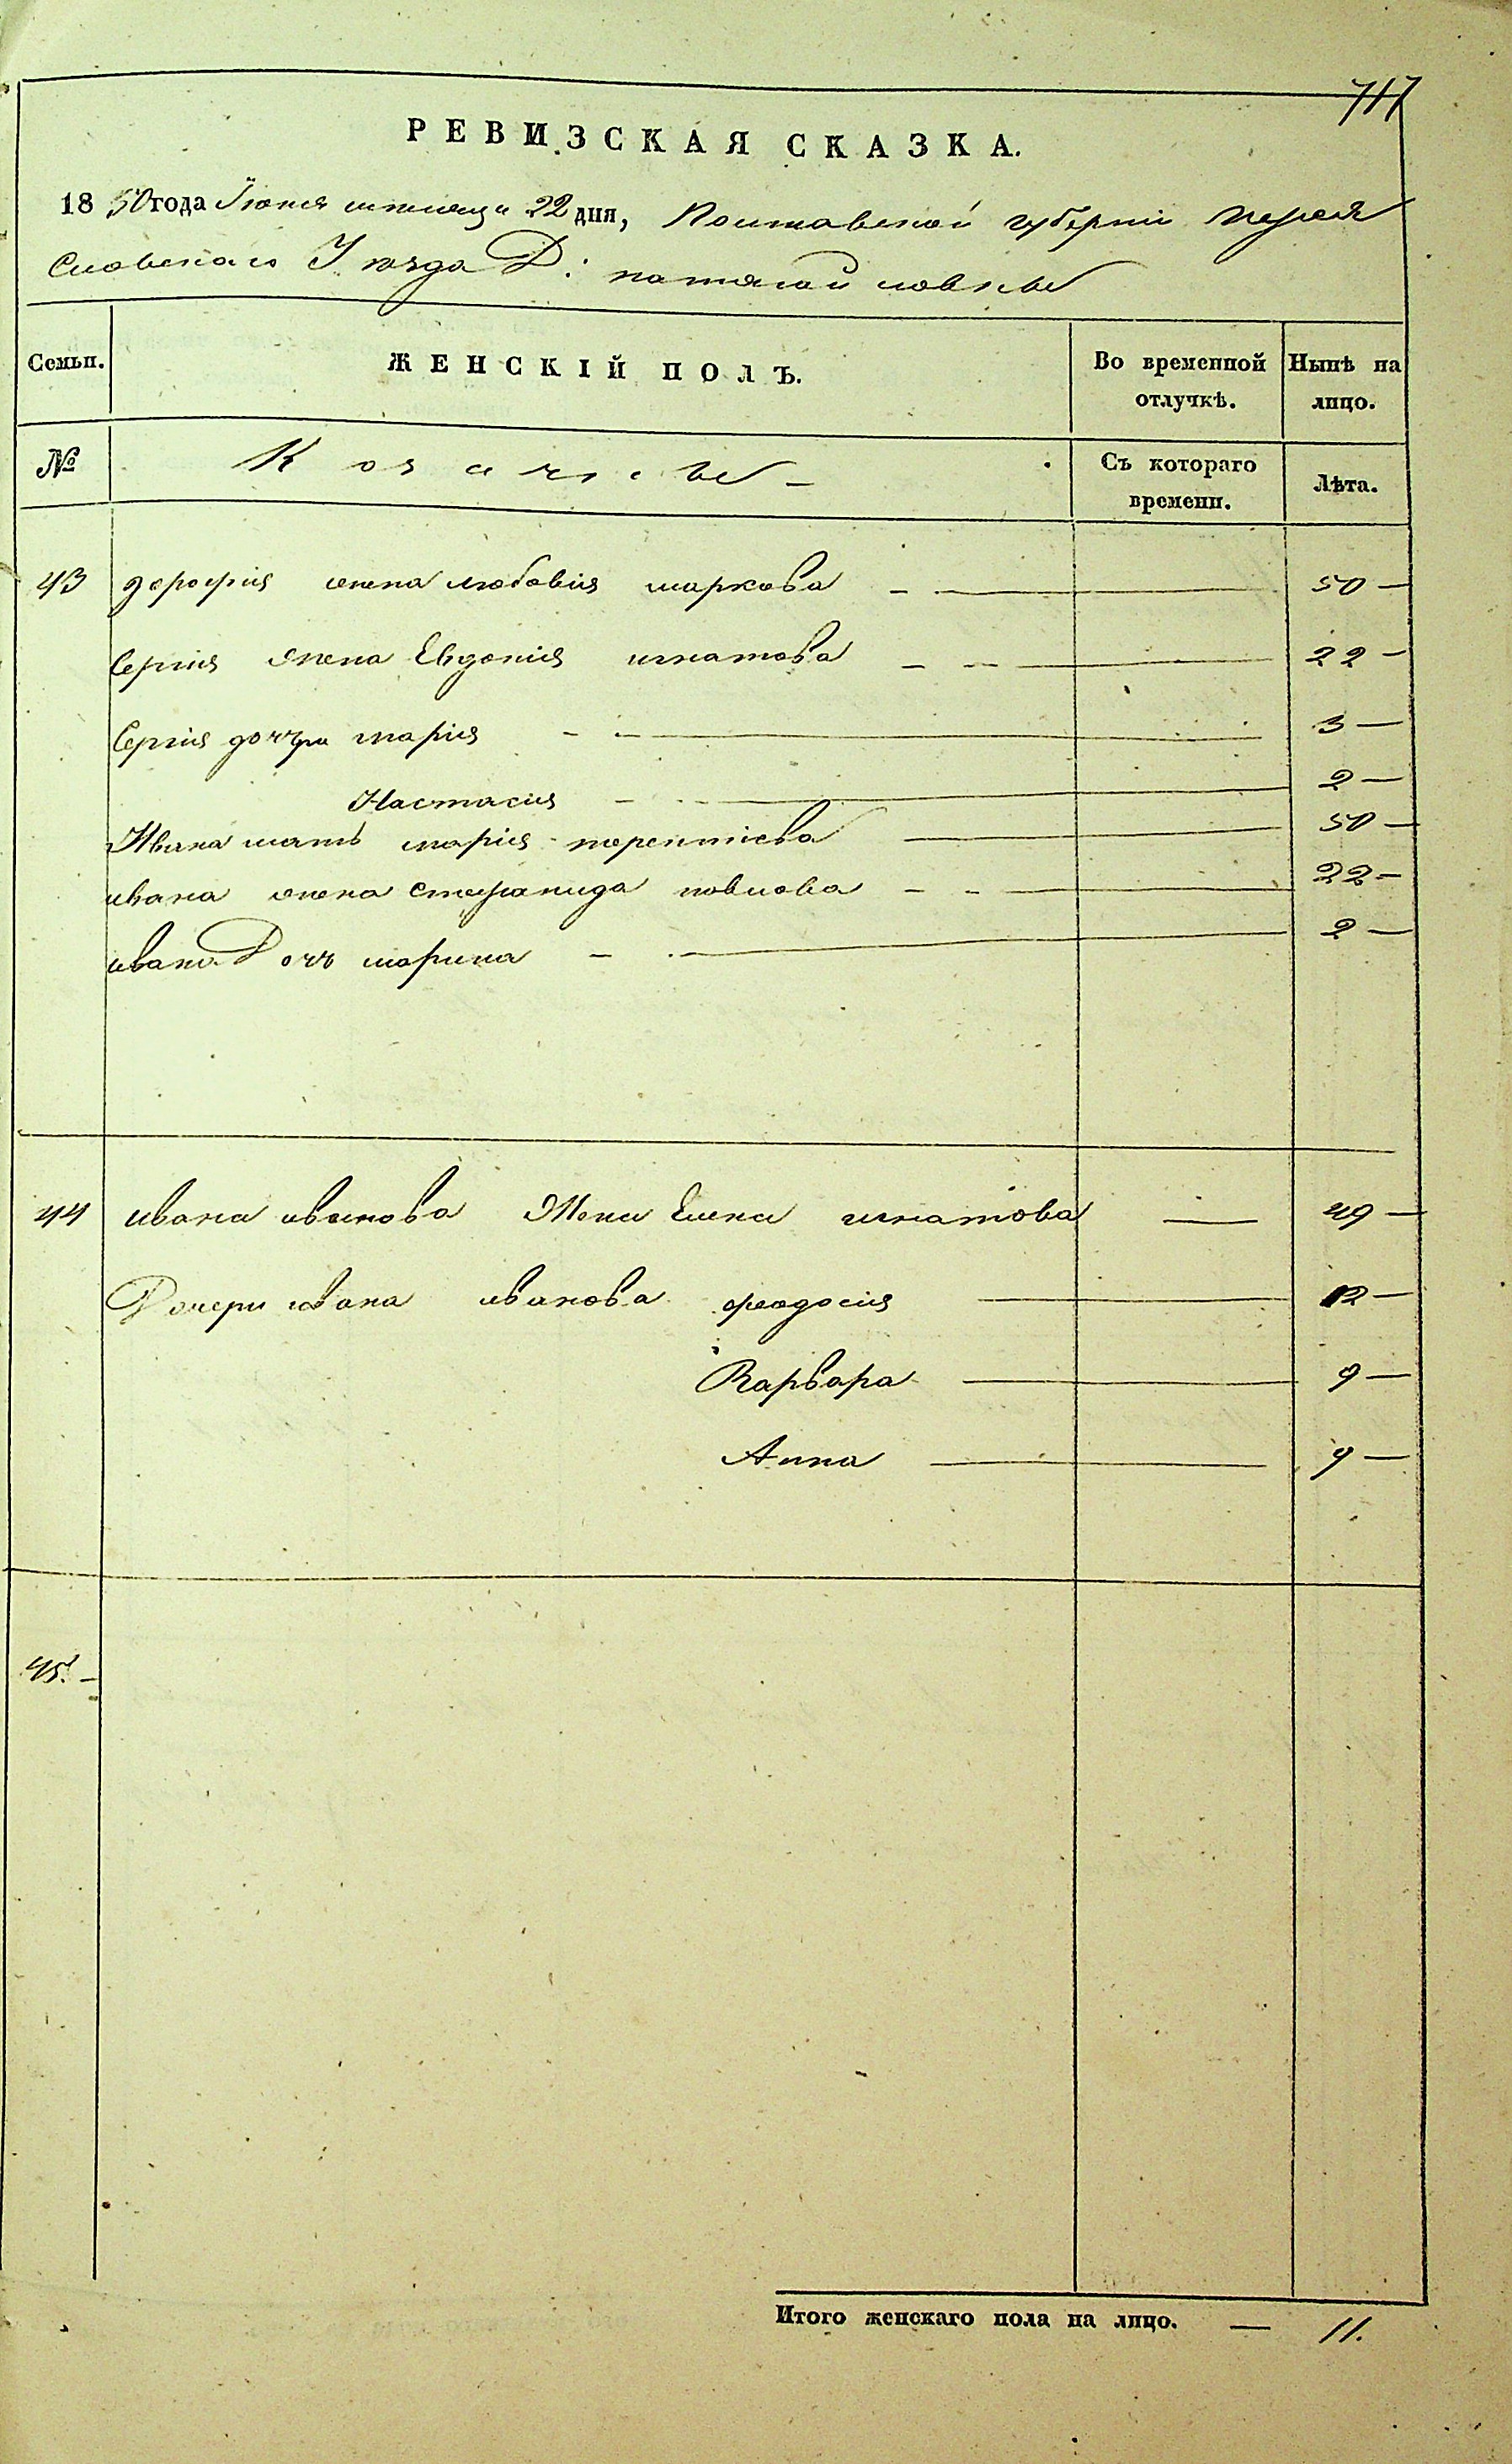 717
РЕВИЗСКАЯ СКАЗКА.
1850 года Июня месяца 22 дня, Полтавской губерніи Перея
Славскаго Уезда Д:
Семьи. ЖЕНСКІЙ ПОЛЪ. Во временной отлучкѣ. Нынѣ на лицо.
№ Козачьѣ Съ котораго времени. Лѣта.
43 дорофія жена любовія маркова 50
Сергія жена Евдокія игнатова 22
Сергія дочери марія 3
Настасія 2
Ивана мать марія терентіева 50
ивана жена стефанида павлова 22
ивана Дочь марина 2
44 ивана иванова Жена Елена игнатова 49
Дочери ивана иванова феодосія 12
Варвара 9
Анна 9
45.
Итого женскаго пола на лицо. — 11.